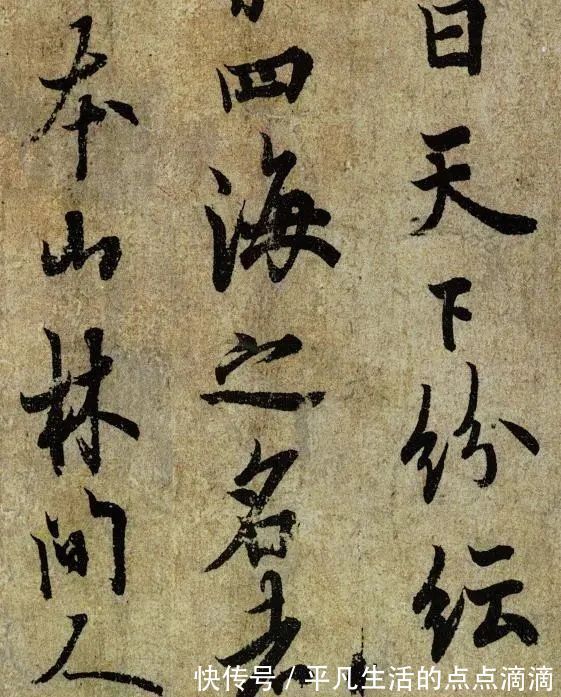 日天下紛紜
四海之名
本山林間人
快传号 / 平凡生活的点点滴滴